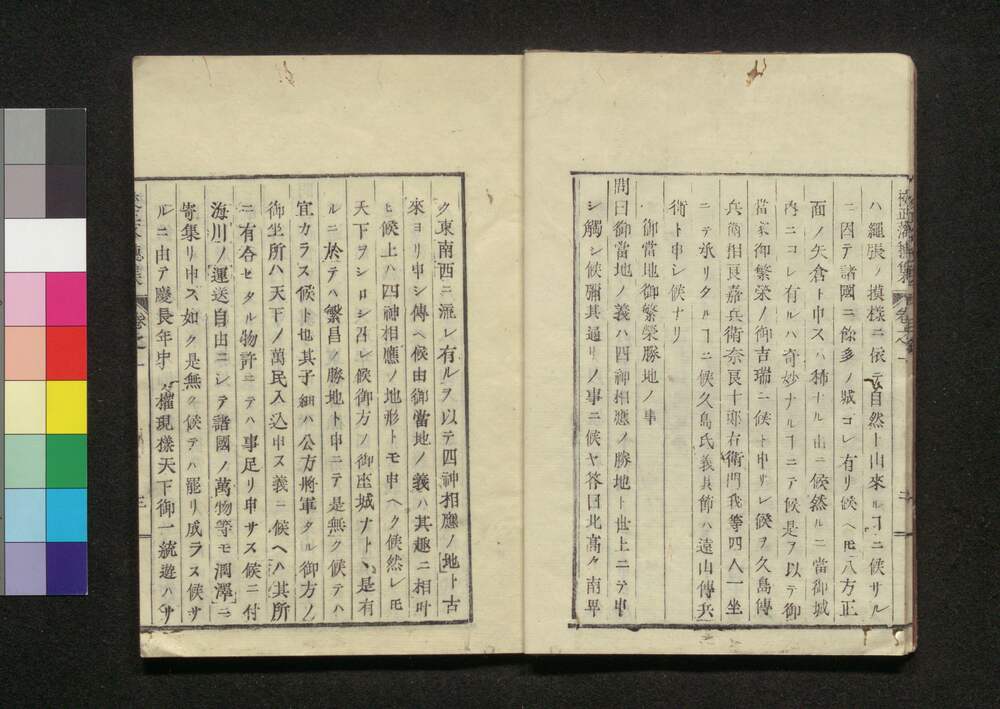 ハ繩張ノ摸樣ニ依テ自然ト出來ルヿニ候サル
ニ因テ諸國ニ餘多ノ城コレ有リ候ヘ𪜈八方正
面ノ矢倉ト申スハ稀ナル由ニ候然ルニ當御城
内ニコレ有ルハ奇妙ナルヿニテ候是ヲ以テ御
當家御繁榮ノ御吉瑞ニ候ト申サレ候ヲ久島傳
兵衞相良嘉兵衞奈良十郎右衛門我等四人一坐
ニテ承リタルヿニ候久島氏義其節ハ遠山傳兵
衛ト申シ候ナリ
御當地御繁榮勝地ノ事
問曰御當地ノ義ハ四神相應ノ勝地ト世上ニテ申
シ觸シ候彌其通リノ事ニ候ヤ答曰北高ク南卑
ク東南西ニ流レ有ルヲ以テ四神相應ノ地ト古
來ヨリ申シ傳ヘ候由御當地ノ義ハ其趣ニ相叶
ヒ候上ハ四神相應ノ地形トモ申ヘク候然レ𪜈
天下ヲシロシ召レ候御方ノ御座城ナトヽ是有
ルニ於テハ繁昌ノ勝地ト申ニテ是無ク候テハ
宜カラス候ト也其子細ハ公方將軍タル御方ノ
御坐所ハ天下ノ萬民入込申ス義ニ候ヘハ其所
ニ有合セタル物許ニテハ事足リ申サス候ニ付
海川ノ運送自由ニシテ諸國ノ萬物等モ潤澤ニ
寄集リ申ス如ク是無ク候テハ罷リ成ラス候サ
ルニ由テ慶長年中權現樣天下御一統遊ハサ
卷之一
三